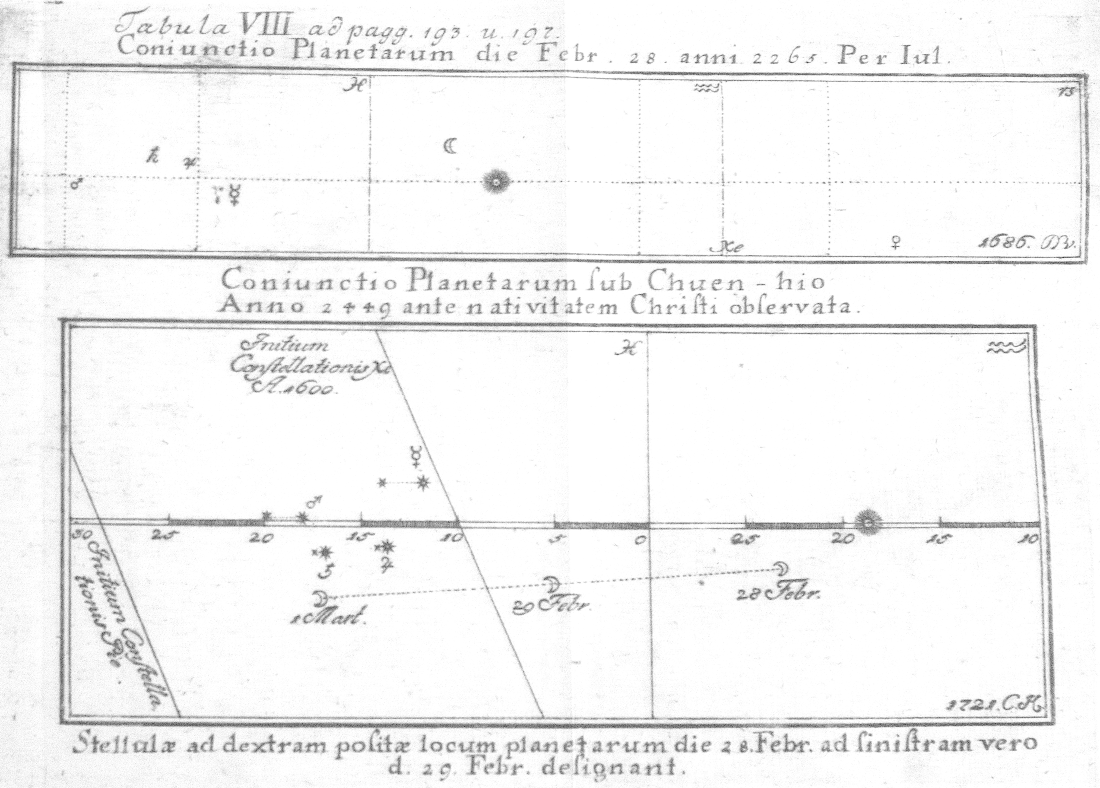 Tabula VIII ad pagg. 193. u. 197.
Coniunctio Planetarum die Febr. 28. anni 2265. Per Iul.
♓ ♒ ♑
☾
♄ ♃
♂ ☿
Xe ♀ 1686.
Coniunctio Planetarum ſub Chuen-hio
Anno 2449 ante nativitatem Chriſti obſervata.
Initium
Conſtellationis Xe
A. 1600.
♓ ♒
☿
♂
30 25 20 15 10 5 0 25 20 15 10
♄ ♃
1 Mart. 29 Febr. 28 Febr.
Initium Conſtella
tionis Pie
1721. C.
Stellulæ ad dextram poſitæ locum planetarum die 28. Febr. ad ſiniſtram vero
d. 29. Febr. deſignant.